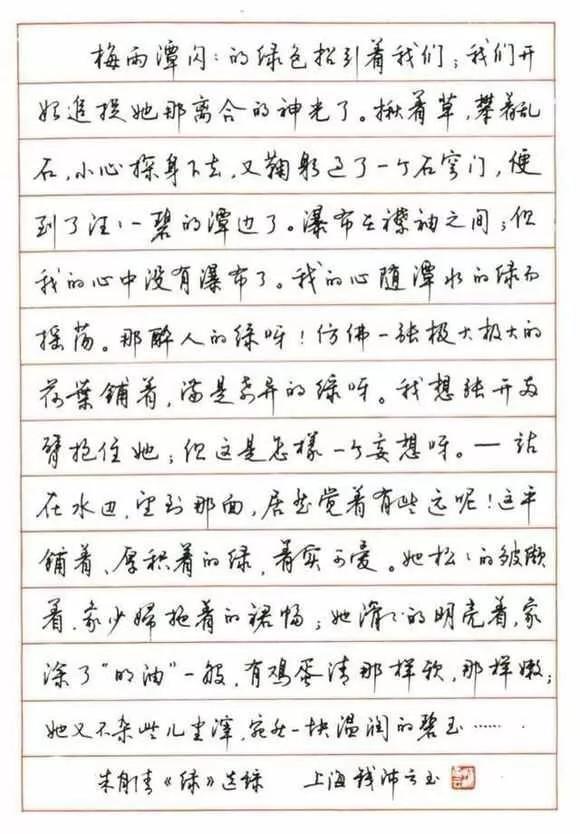 梅雨潭闪：的绿色招引着我们；我们开
始追捉她那离合的神光了。揪着草，攀着乱
石，小心探身下去，又鞠躬过了一个石穹门，便
到了汪：一碧的潭边了。瀑布在襟袖之间；但
我的心中没有瀑布了。我的心随潭水的绿而
摇荡。那醉人的绿呀！仿佛一张极大极大的
荷葉铺着，满是奇异的绿呀。我想张开两
臂抱住她；但这是怎樣一个妄想呀。—站
在水边，望到那面，居然觉着有些远呢！这平
铺着、厚积着的绿，着实可爱。她松：的皱颊
着，象少婦拖着的裙幅；她滑：的明亮着，象
涂了“明油”一般，有鸡蛋清那样软，那样嫩；
她又不杂些儿尘滓，宛然一块温润的碧玉……
朱自清《绿》选録 上海钱沛云书